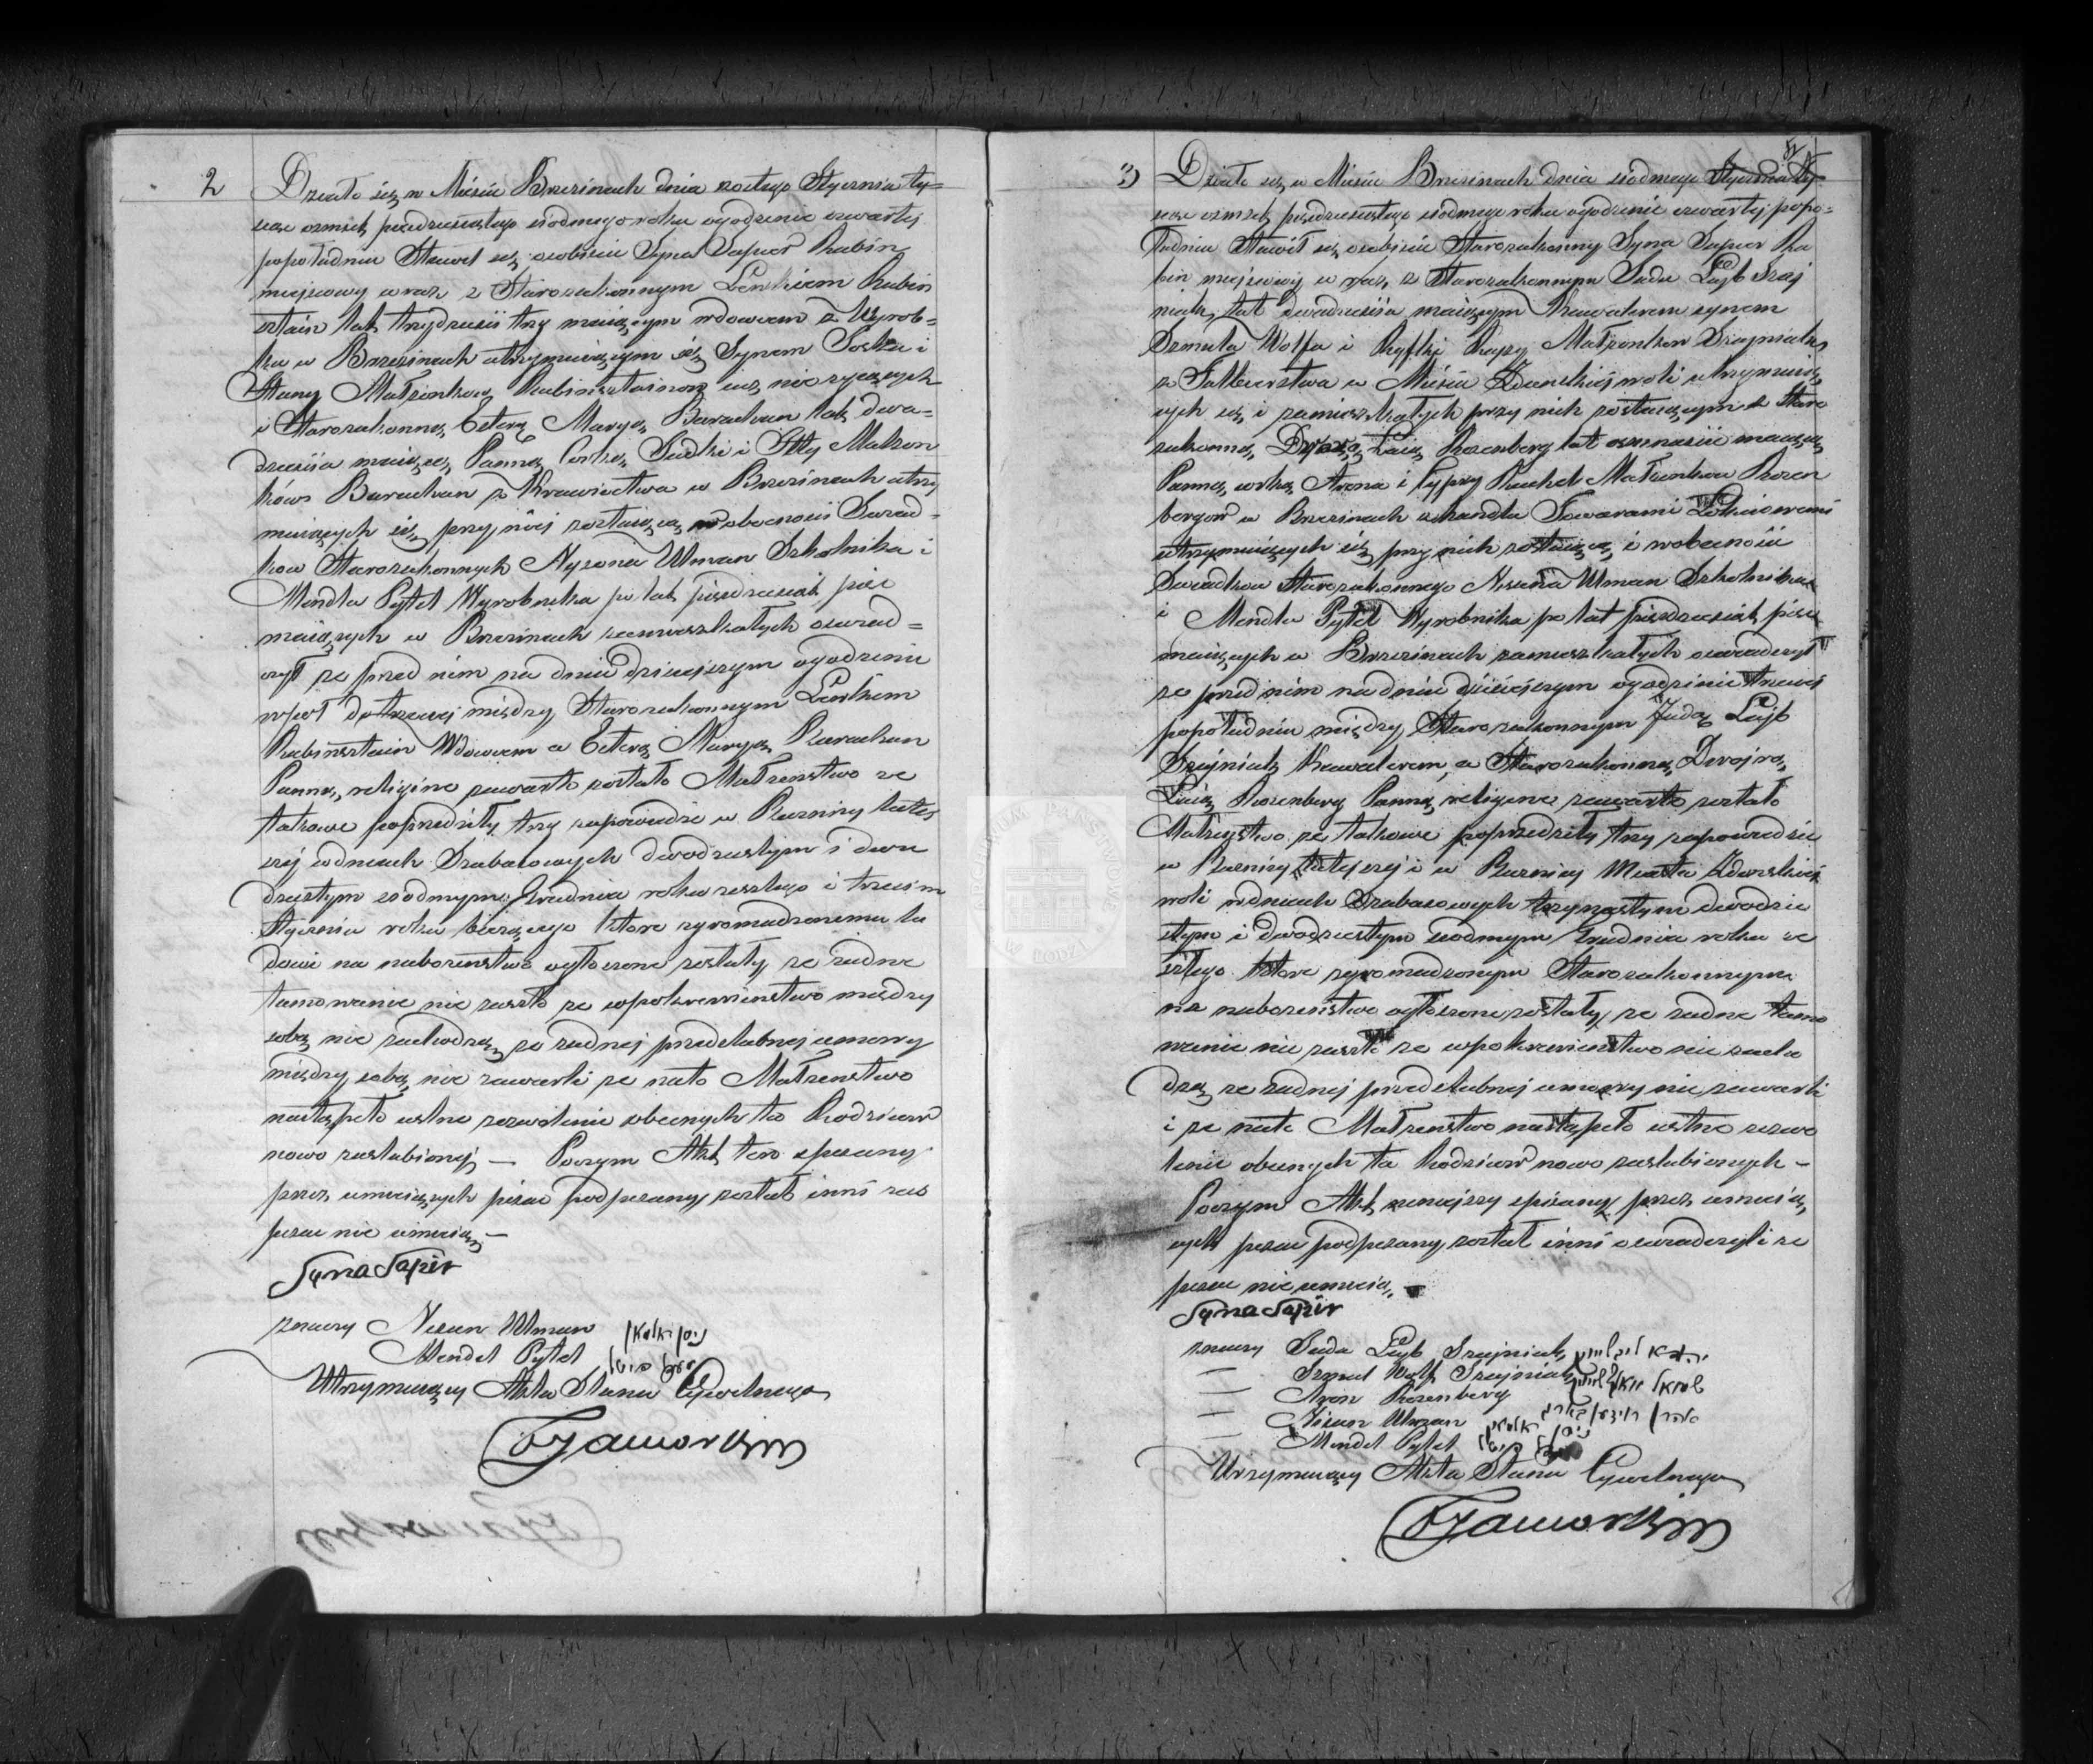 2
Działo się w Mieście Brzezinach dnia szóstego Stycznia ty=
siąc ośmset pięćdziesiątego siódmego roku o godzinie czwartej
popołudniu Stawił się osobiście Syna Sapir Rabin
miejscowy wraz z Starozakonnym Lewkiem Rubin
sztain lat trzydzieści trzy maiącym wdowcem z Wyrob=
ku w Brzezinach utrzymuiącym się Synem Joska i
Małżonków Rubinsztainów iuż nie żyiących
i Starozakonną Esterą Maryą Barachan lat dwa=
dzieścia maiącą, Panną Córką Judki i Itty Małżon
ków Barachan z Krawiectwa w Brzezinach utrzy
muiących się, przy niej zostaiącą w obecności Świad=
ków Starozakonnych Nysona Ulman Szkolnika i
Mendla Pytel Wyrobnika po lat pięćdziesiąt pięć
maiących w Brzezinach zamieszkałych oświad=
czył że przed nim na dniu dzisiejszym o godzinie
wpół do trzeciej między Starozakonnym Lewkiem
Rubinsztain Wdowcem a Esterą Maryą Barachan
Panną, religijne zawarte zostało Małżeństwo że
takowe poprzedziły trzy zapowiedzie w Bużnicy tutej
szej w dniach Szabasowych dwudziestym i dwu
dziestym siódmym Grudnia roku zeszłego i trzecim
Stycznia roku bieżącego które zgromadzonemu lu
dowi na nabożeństwo ogłoszone zostały, że żadne
tamowanie nie zaszło że wpokrewieństwo między
sobą nie zachodzą, że żadnej przedślubnej umowy
między sobą nie zawarli że na to Małżeństwo
nastąpiło ustne zezwolenie obecnych tu Rodziców
nowo zaślubionej — Poczym Akt ten spisany
przez umieiących pisać podpisany został inni zaś
pisać nie umieią —
Syna Sapir
znaczy Nisen Ulman
Mendel Pytel
Utrzymuiący Akta Stanu Cywilnego
3
Działo się w Mieście Brzezinach dnia siódmego Stycznia ty
siąc ośmset pięćdziesiątego siódmego roku o godzinie czwartej popo=
łudniu Stawił się osobiście Starozakonny Syna Sapir Ra
bin miejscowy wraz z Starozakonnym Juda Lajb Szaj
niak, lat dwadzieścia maiącym Kawalerem synem
Szmula Wolfa i Ryfki Małżonków Szajniak
z w Mieście Zduńskiej woli utrzymuią
cych się i zamieszkałych przy nich zostaiącym a Staro
zakonną Dwojrą Laią Rozenberg lat ośmnaście maiącą
Panną, córką Arona i Cypry Ruchel Małżonków Rozen
bergów w Brzezinach z handlu Towarami Łokciowemi
utrzymuiących się przy nich zostaiącą, i w obecności
Świadków Starozakonnego Nisena Ulman Szkolnika
i Mendla Pytel Wyrobnika po lat pięćdziesiąt pięć
maiących w Brzezinach zamieszkałych oświadczył
że przed nim na dniu dzisiejszym o godzinie trzeciej
popołudniu między Starozakonnym Judą Lajb
Szajniak Kawalerem, a Starozakonną Dwojrą,
Laią Rozenberg Panną religijne zawarte zostało
Małżeństwo że takowe poprzedziły trzy zapowiedzie
w Bużnicy tutejszej i w Bużnicy Miasta Zduńskiej
woli w dniach Szabasowych trzynastym dwudzie
stym i dwudziestym siódmym Grudnia roku ze
szłego które zgromadzonym Starozakonnym
na nabożeństwo ogłoszone zostały, że żadne tamo
wanie nie zaszło że wpokrewieństwo nie zacho
dzą że żadnej przedślubnej umowy nie zawarli
i że na te Małżeństwo nastąpiło ustne zezwo
lenie obecnych tu Rodziców nowo zaślubionych —
Poczym Akt niniejszy spisany przez umieią
cych pisać podpisany został inni oświadczyli że
pisać nie umieią, —
Syna Sapir
znaczy Juda Lajb Szajniak
— Szmul Wolf Szajniak
— Aron Rozenberg
— Nisen Ulman
Mendel Pytel
Utrzymuiący Akta Stanu Cywilnego